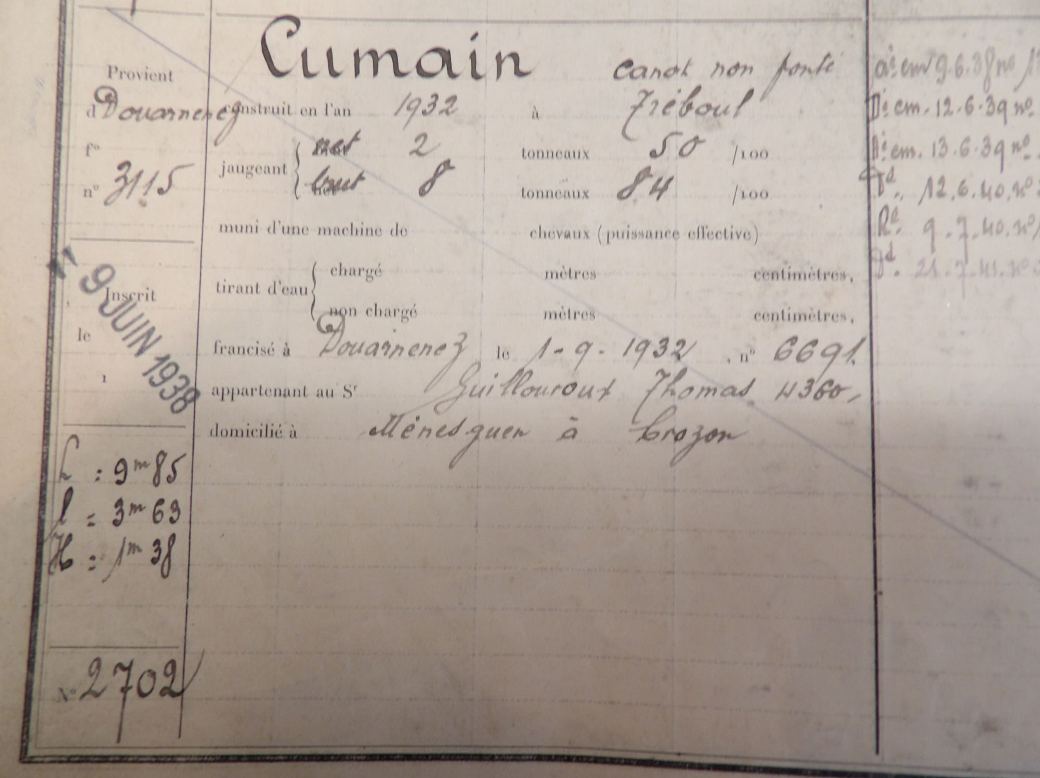 Cumain canot non ponté
Provient
d Douarnenez
f°
n° 3115
Inscrit
le
9 JUIN 1938
1
L : 9m 85
l = 3m 63
H = 1m 38
N° 2702
construit en l'an 1932 à Tréboul
jaugeant net 2 tonneaux 50 /100
brut 8 tonneaux 84 /100
muni d'une machine de chevaux (puissance effective)
tirant d'eau chargé mètres centimètres,
non chargé mètres centimètres,
francisé à Douarnenez le 1-9-1932, n° 6691.
appartenant au Sr Guillouroux Thomas 4360,
domicilié à Ménesguen à Crozon
em 9.6.38 n°
em. 12.6.39 n°
em. 13.6.39 n°
12.6.40. n°
9.7.40. n°
21.7.41. n°